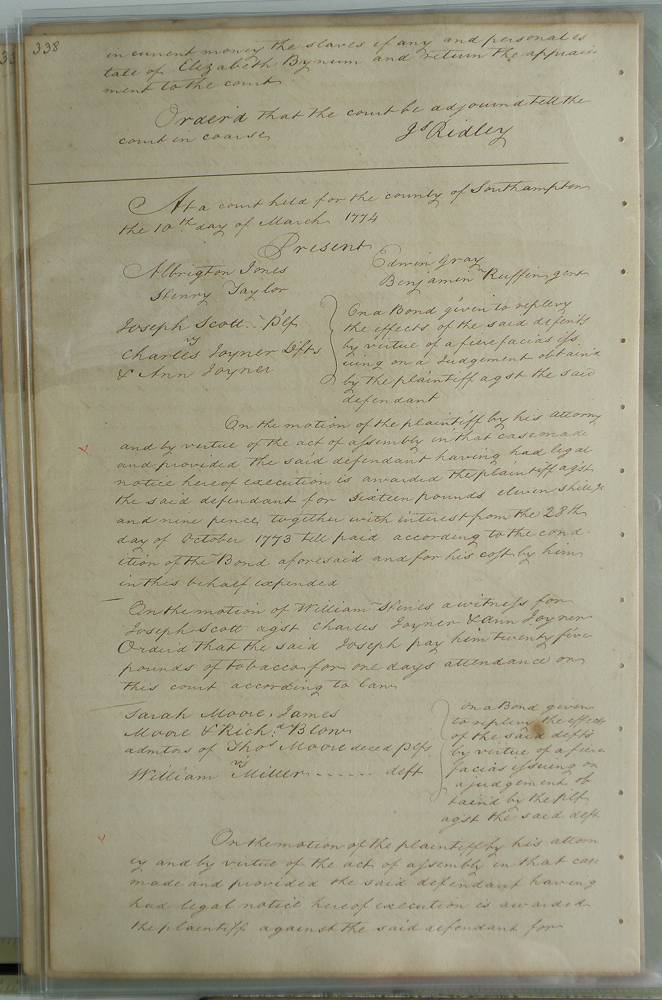 338
in current money the slaves if any and personal es
tate of Elizabeth Bynum and return the apprais
ment to the court
Orderd that the court be adjournd tell the
court in coarse
Js Ridley
At a court held for the county of Southampton
the 10th day of March 1774
Present
Albrigton Jones
Henry Taylor
Edwin Gray
Benjamin Ruffin gent
Joseph Scott Plf
vs
Charles Joyner Defts
& Ann Joyner
On a Bond given to replevy
the effects of the said defents
by virtue of a fiere facias iss
uing on a Judgement obtain'd
by the plaintiff agst the said
defendant
On the motion of the plaintiff by his attorny
and by virtue of the act of assembly in that case made
and provided the said defendant having had legal
notice hereof execution is awarded the plaintiff agst
the said defendant for sixteen pounds eleven shillgs
and nine pence, together with interest from the 28th
day of October 1773 till paid according to the cond
ition of the Bond aforesaid and for his cost by him
in this behalf expended
On the motion of William a witness for
Joseph Scott agst Charles Joyner & Ann Joyner
Orderd that the said Joseph pay him twenty five
pounds of tobacco for one days attendance on
this court according to law
Sarah Moore, James
Moore & Richd Blow
admtors of Thos Moore deced Plfs
vs
William Miller deft
On a Bond given
to replevy the effects
of the said defts
by virtue of a fiere
facias issuing on
a judgement ob
taind by the Plf
agst the said deft
On the motion of the plaintiff by his attorn
ey and by virtue of the act of assembly in that case
made and provided the said defendant having
had legal notice hereof execution is awarded
the plaintiffs against the said defendant for